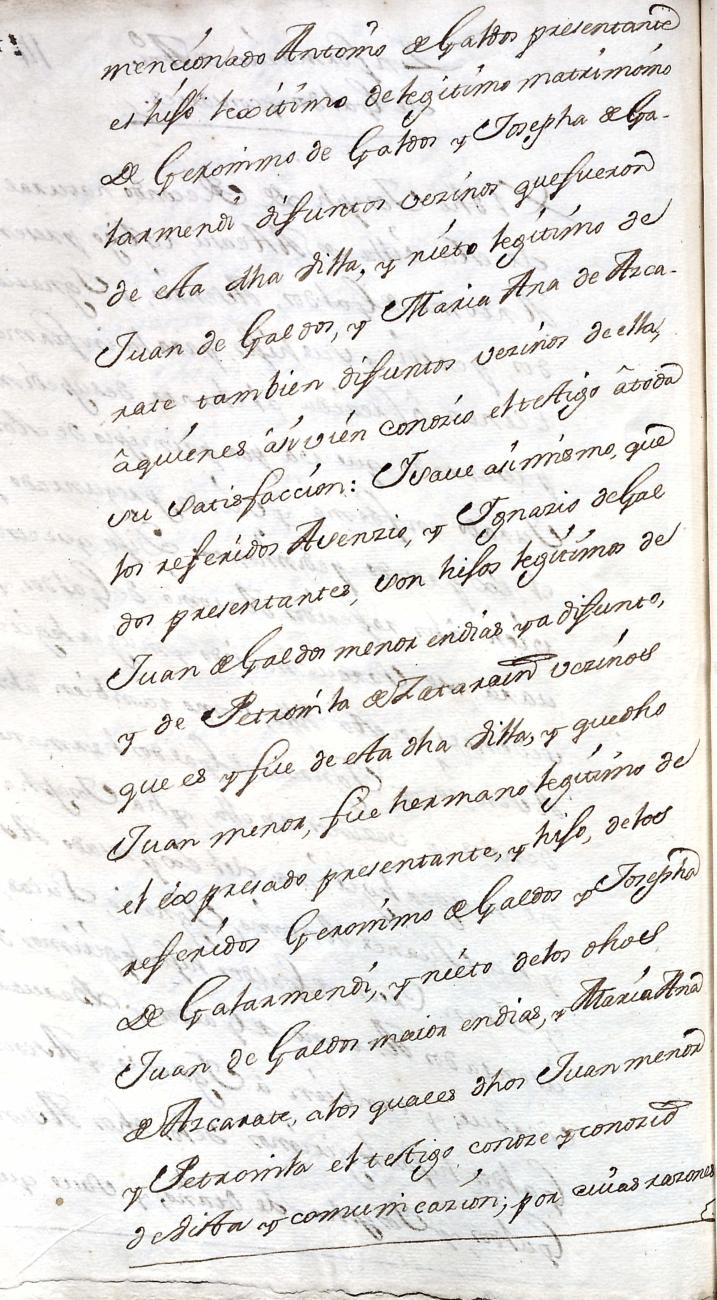 mencionado Antonio de Galdos presentante
es hijo lexitimo de legitimo matrimonio
De Geronimo de Galdos y Josepha de Ga-
larmendi difuntos vezinos que fueron
de esta dha villa, y nieto legitimo de
Juan de Galdos, y Maria Ana de Azca-
rate tambien difuntos vezinos de ella,
â quienes âsi vien conozio el testigo â toda
su satisfaccion: Y save asi mismo, que
los referidos Asenzio, y Ygnazio de Gal
dos presentantes, son hijos legitimos de
Juan de Galdos menor en dias ya difunto,
y de Petronila de Zatarain vezinos
que es y fue de esta dha villa, y que dho
Juan menor, fue hermano legitimo de
el expresado presentante, y hijo, de los
referidos Geronimo de Galdos y Josepha
De Galarmendi, y nieto de los dhos
Juan de Galdos maior en dias, y Maria Ana
de Azcarate, a los quales dhos Juan menor
y Petronila el testigo conoze y conozio
de vista y comunicazion; por cuias razones